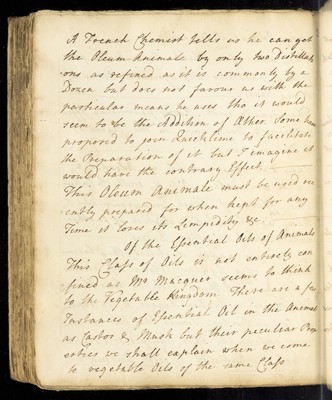 A French Chemist tells us he can get
the Oleum Animale by only two Distillati
ons as refined as it is commonly by a
Dozen but does not favour us with the
particular means he uses tho it would
seem to be the Addition of Æther Some have
proposed to join Quicklime to facilitate
the Preparation of it but I imagine it
would have the contrary Effect.
This Oleum Animale must be used re
cently prepared for when kept for any
Time it loses its Limpidity &c
Of the Essential Oils of Animals
This Class of Oils is not entirely con
fined as Mr Macquer seems to think
to the Vegetable Kingdom There are a few
Instances of Essential Oil in the Animal
as Castor & Musk but their peculiar Prop
erties we shall explain when we come
to vegetable Oils of the same Class